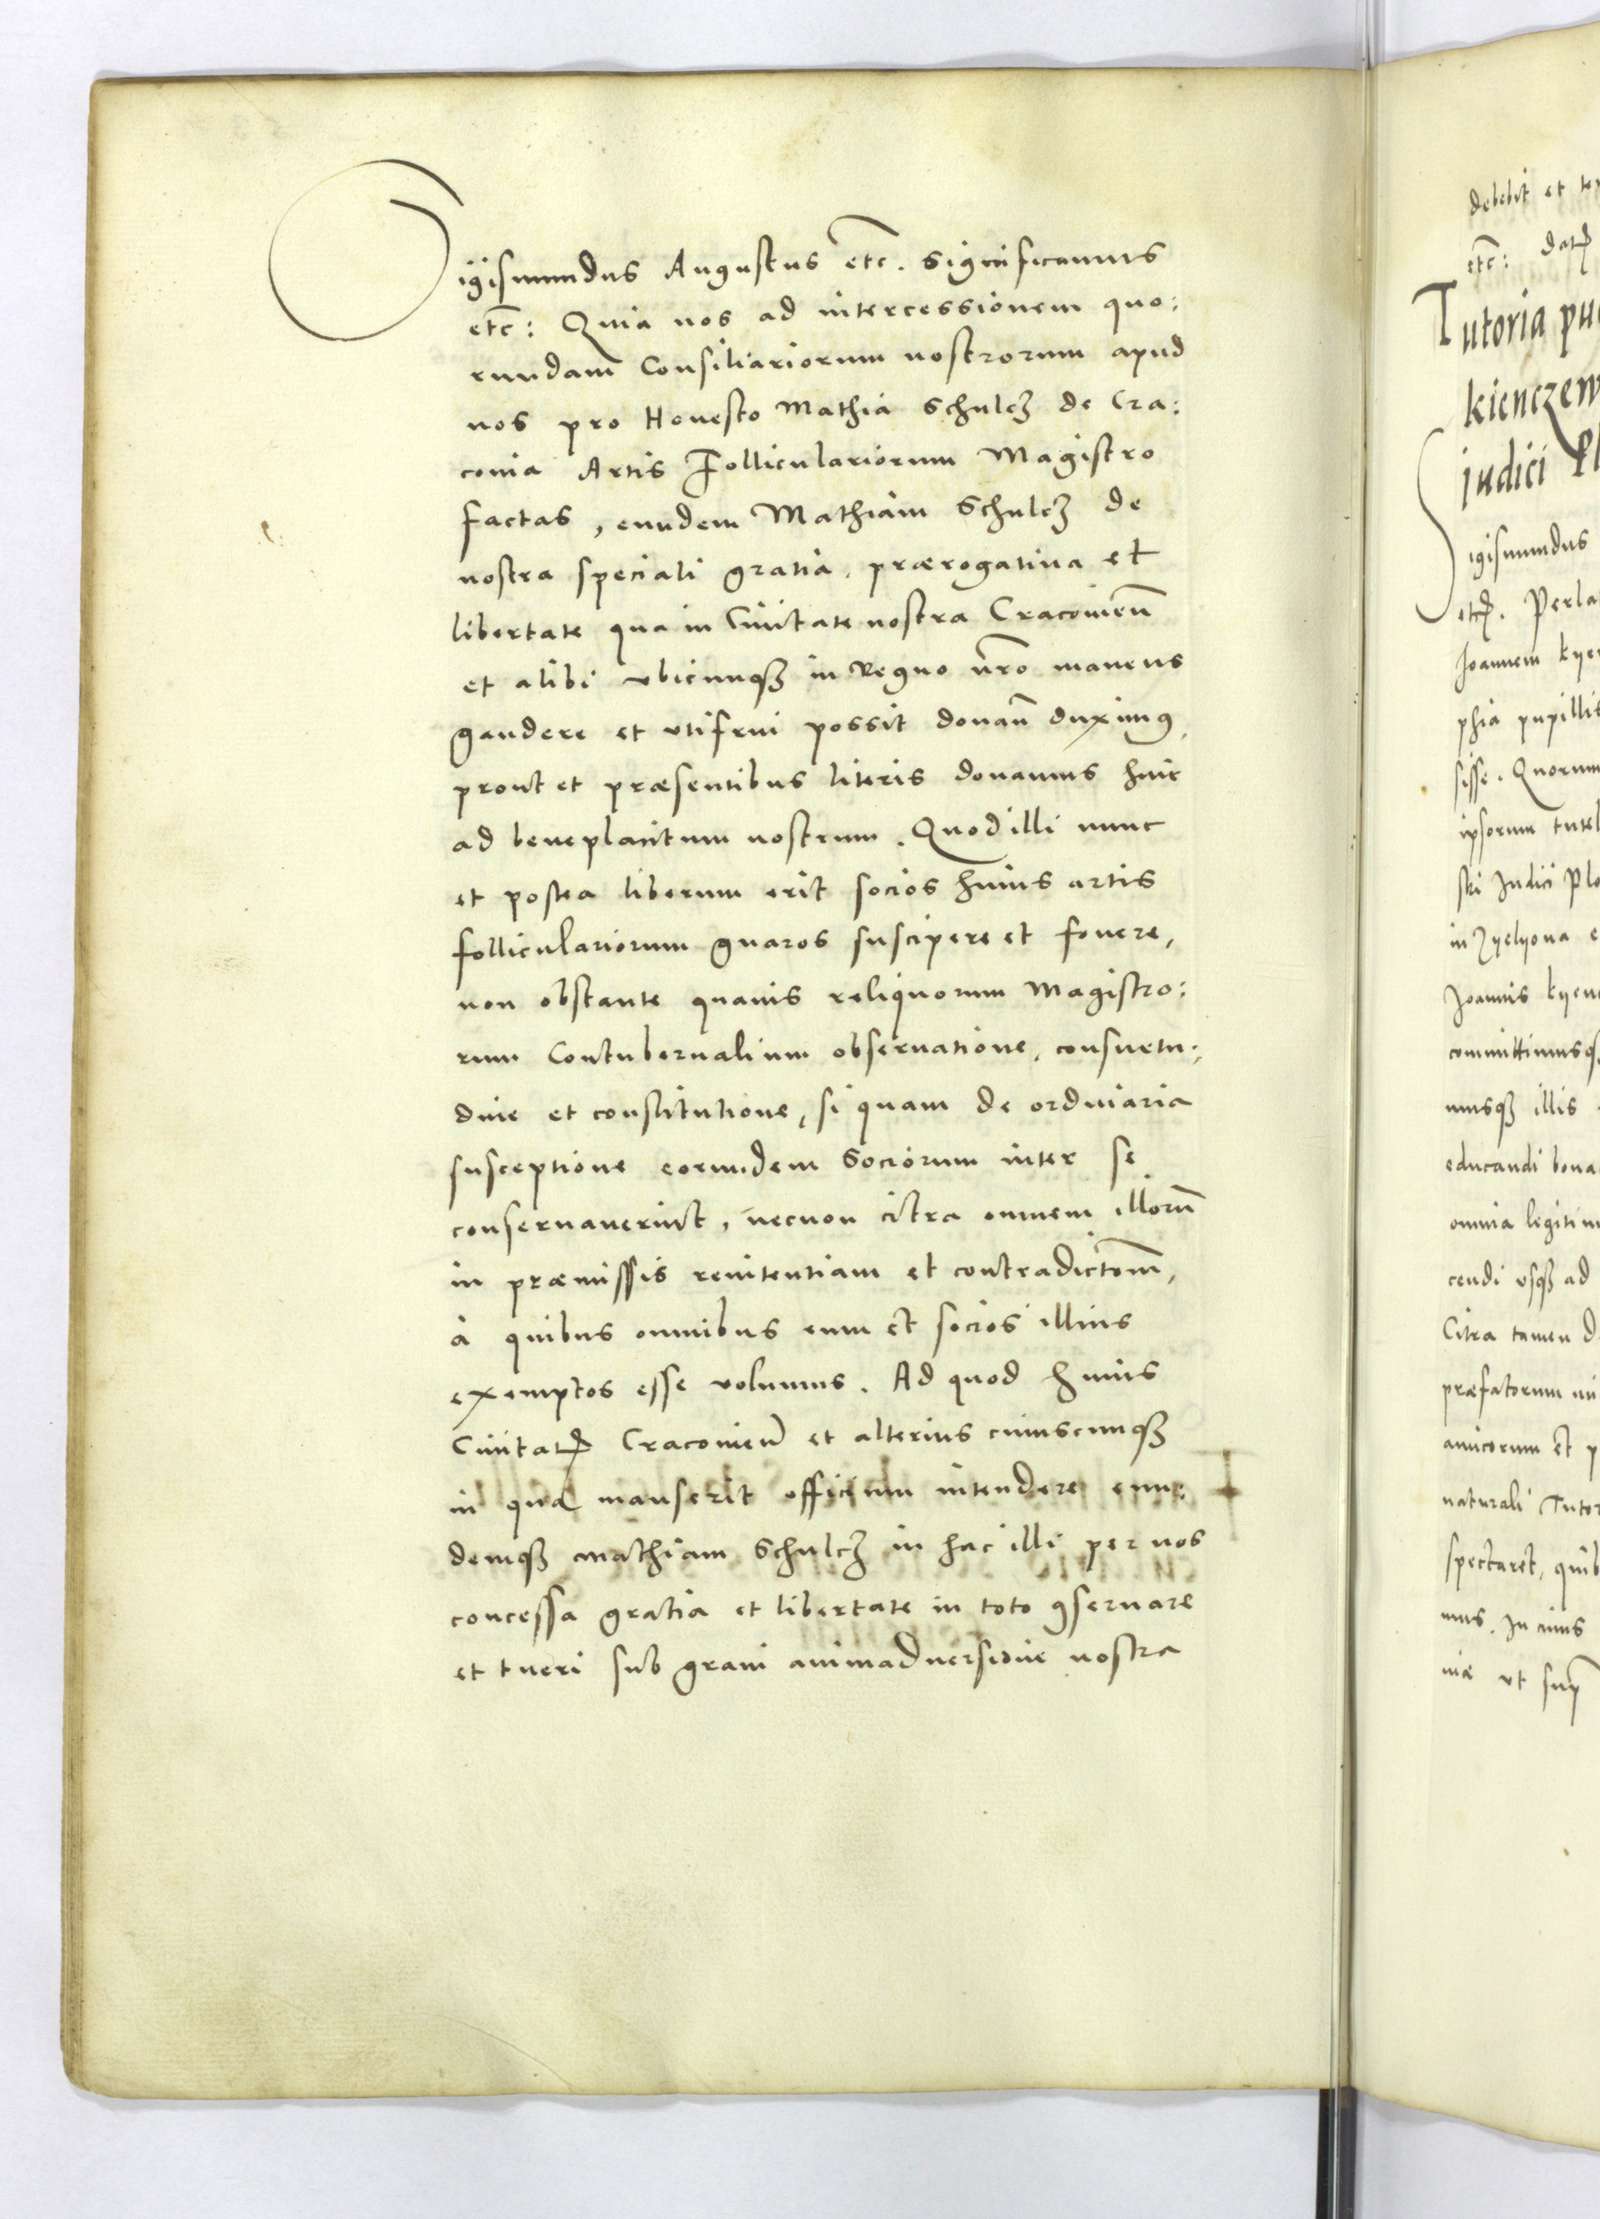 Sigismundus Augustus etc. significamus
etc: Quia nos ad intercessionem quo:
rundam Consiliariorum nostrorum apud
nos pro Honesto Mathia Schulcz de Cra:
couia Artis Folliculariorum Magistro
factas, eundem Mathiam Schulcz de
nostra speciali gratia, prærogatiua et
libertate qua in Ciuitate nostra Cracouien̄
et alibi vbicunqꝫ in Regno nr̄o manens
gaudere et vtifrui possit donan̄ duximꝰ,
prout et præsentibus literis donamus huic
ad beneplacitum nostrum. Quod illi nunc
et postea liberum erit socios huius artis
folliculariorum gnaros suscipere et fouere,
non obstante quauis reliquorum Magistro:
rum Contubernalium obseruatione, consuetu:
dine et constitutione, si quam de ordinaria
susceptione eorundem Sociorum inter se
conseruauerint, necnon citra omnem illorū
in præmissis renitentiam et contradictōm̄,
à quibus omnibus eum et socios illius
exemptos esse volumus. Ad quod huius
Ciuitatꝭ Cracouien̄ et alterius cuiuscunqꝫ
in qua manserit officium intendere eun:
demqꝫ Mathiam Schulcz in hac illi per nos
concessa gratia et libertate in toto ꝯseruare
et tueri sub graui animaduersione nostra
debebit et
etc: datꝭ
Tutoria
kienczew
judici Pl
Sigismundus
etcꝭ. Perla
Joannem kyen
phia pupillis
sisse. Quorum
ipsorum tutel
stri Judici Plo
in Zyelyona
Joannis kyen
committimusqꝫ
musqꝫ illis
educandi bona
omnia legitim
cendi vsqꝫ ad
Citra tamen
præfatorum
amicorum et
naturali Tutor
spectaret, quib
mus. In cuius
niæ vt sup